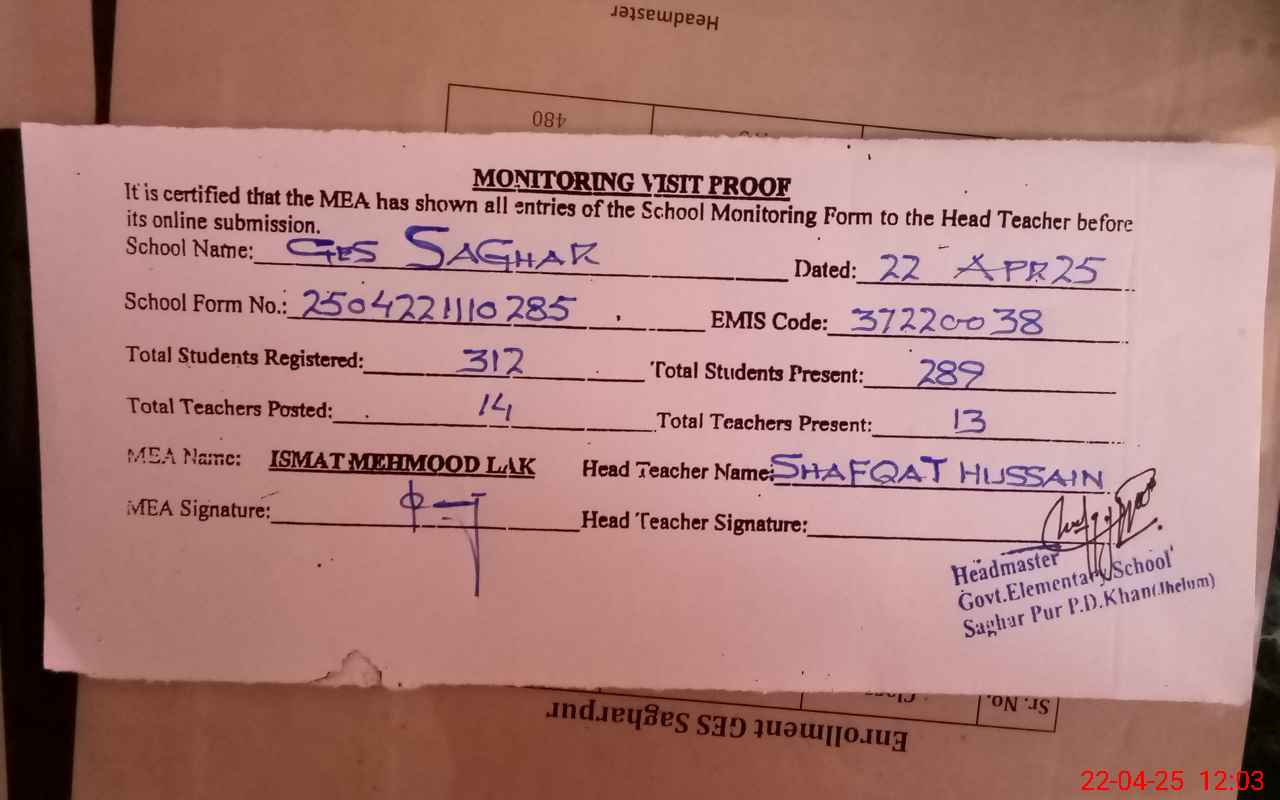 Headmaster
480
MONITORING VISIT PROOF
It is certified that the MEA has shown all entries of the School Monitoring Form to the Head Teacher before
its online submission.
School Name: GES SAGHAR Dated: 22 APR 25
School Form No.: 2504221110285 EMIS Code: 37220038
Total Students Registered: 312 Total Students Present: 289
Total Teachers Posted: 14 Total Teachers Present: 13
MEA Name: ISMAT MEHMOOD LAK Head Teacher Name: SHAFQAT HUSSAIN
MEA Signature: Head Teacher Signature:
Headmaster
Govt.Elementary School
Saghar Pur P.D.Khan(Jhelum)
Sr. No. Class
Enrollment GES Sagharpur
22-04-25 12:03